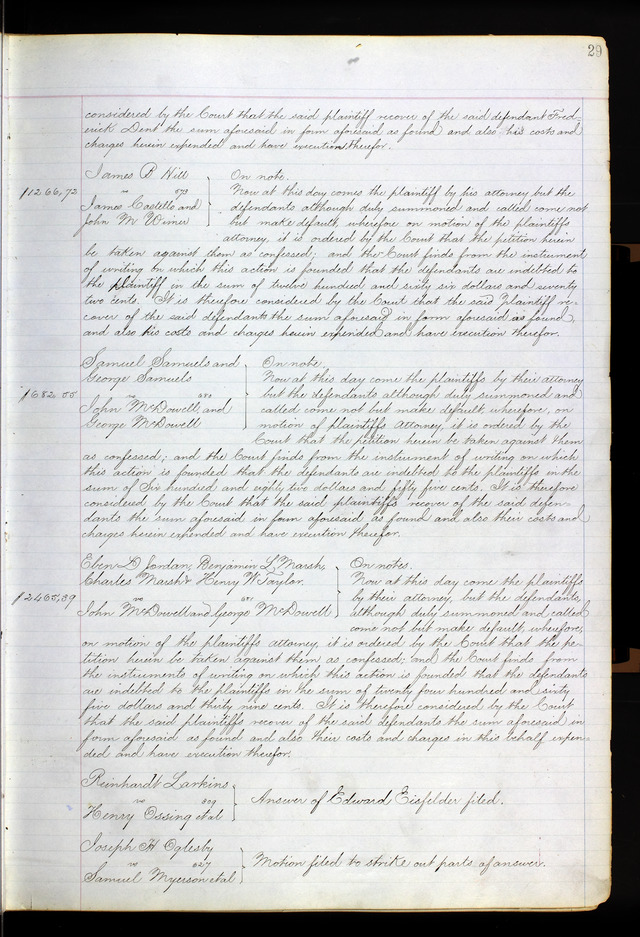 29
considered by the Court that the said plaintiff recover of the said defendant Fred-
erick Dent the sum aforesaid in form aforesaid as found and also his costs and
charges herein expended and have execution therefor.
James B Hill
vs
James Castello and
John M Wimer
$1266,72
On note.
Now at this day comes the plaintiff by his attorney but the
defendants although duly summoned and called come not
but make default, wherefore on motion of the plaintiffs
attorney, it is ordered by the Court that the petition herein
be taken against them as confessed; and the Court finds from the instrument
of writing on which this action is founded that the defendants are indebted to
the plaintiff in the sum of twelve hundred and sixty six dollars and seventy
two cents. It is therefore considered by the Court that the said Plaintiff re-
cover of the said defendants the sum aforesaid in form aforesaid as found,
and also his costs and charges herein expended and have execution therefor.
Samuel Samuels and
George Samuels
vs
John McDowell, and
George McDowell
$682 55
On note
Now at this day come the plaintiffs by their attorney
but the defendants although duly summoned and
called come not but make default, wherefore, on
motion of plaintiffs attorney, it is ordered by the
Court that the petition herein be taken against them
as confessed; and the Court finds from the instrument of writing on which
this action is founded that the defendants are indebted to the plaintiffs in the
sum of Six hundred and eighty two dollars and fifty five cents. It is therefore
considered by the Court that the said plaintiffs recover of the said defen-
dants the sum aforesaid in form aforesaid as found and also their costs and
charges herein expended and have execution therefor.
Eben D Jordan, Benjamin L Marsh,
Charles Marsh & Henry W Taylor.
vs
John McDowell and George McDowell
$2465,39
On notes.
Now at this day come the plaintiffs
by their attorney, but the defendants,
although duly summoned and called
come not but make default, wherefore,
on motion of the plaintiffs attorney, it is ordered by the Court that the pe-
tition herein be taken against them as confessed; and the Court finds from
the instruments of writing on which this action is founded that the defendants
are indebted to the plaintiffs in the sum of twenty four hundred and sixty
five dollars and thirty nine cents. It is therefore considered by the Court
that the said plaintiffs recover of the said defendants the sum aforesaid in
form aforesaid as found and also their costs and charges in this behalf expen-
ded and have execution therefor.
Reinhardt Larkins
vs 809
Henry Ossing et al
Answer of Edward Eisfelder filed.
Joseph H Oglesby
vs 827
Samuel Myerson et al
Motion filed to strike out parts of answer.